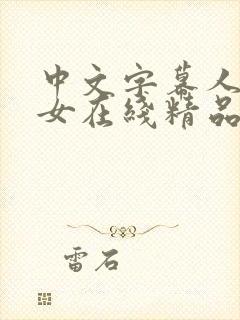 中文字幕人
女在线精品
雷石